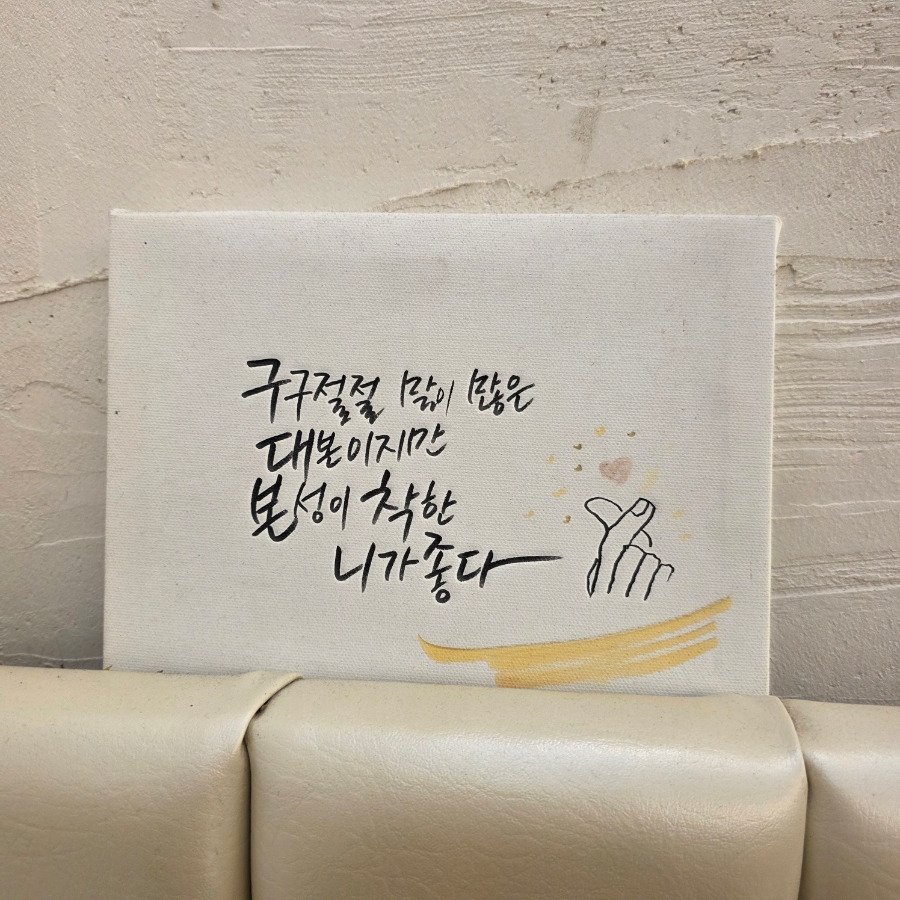 구구절절 말이 많은
대본이지만
본성이 착한
니가좋다